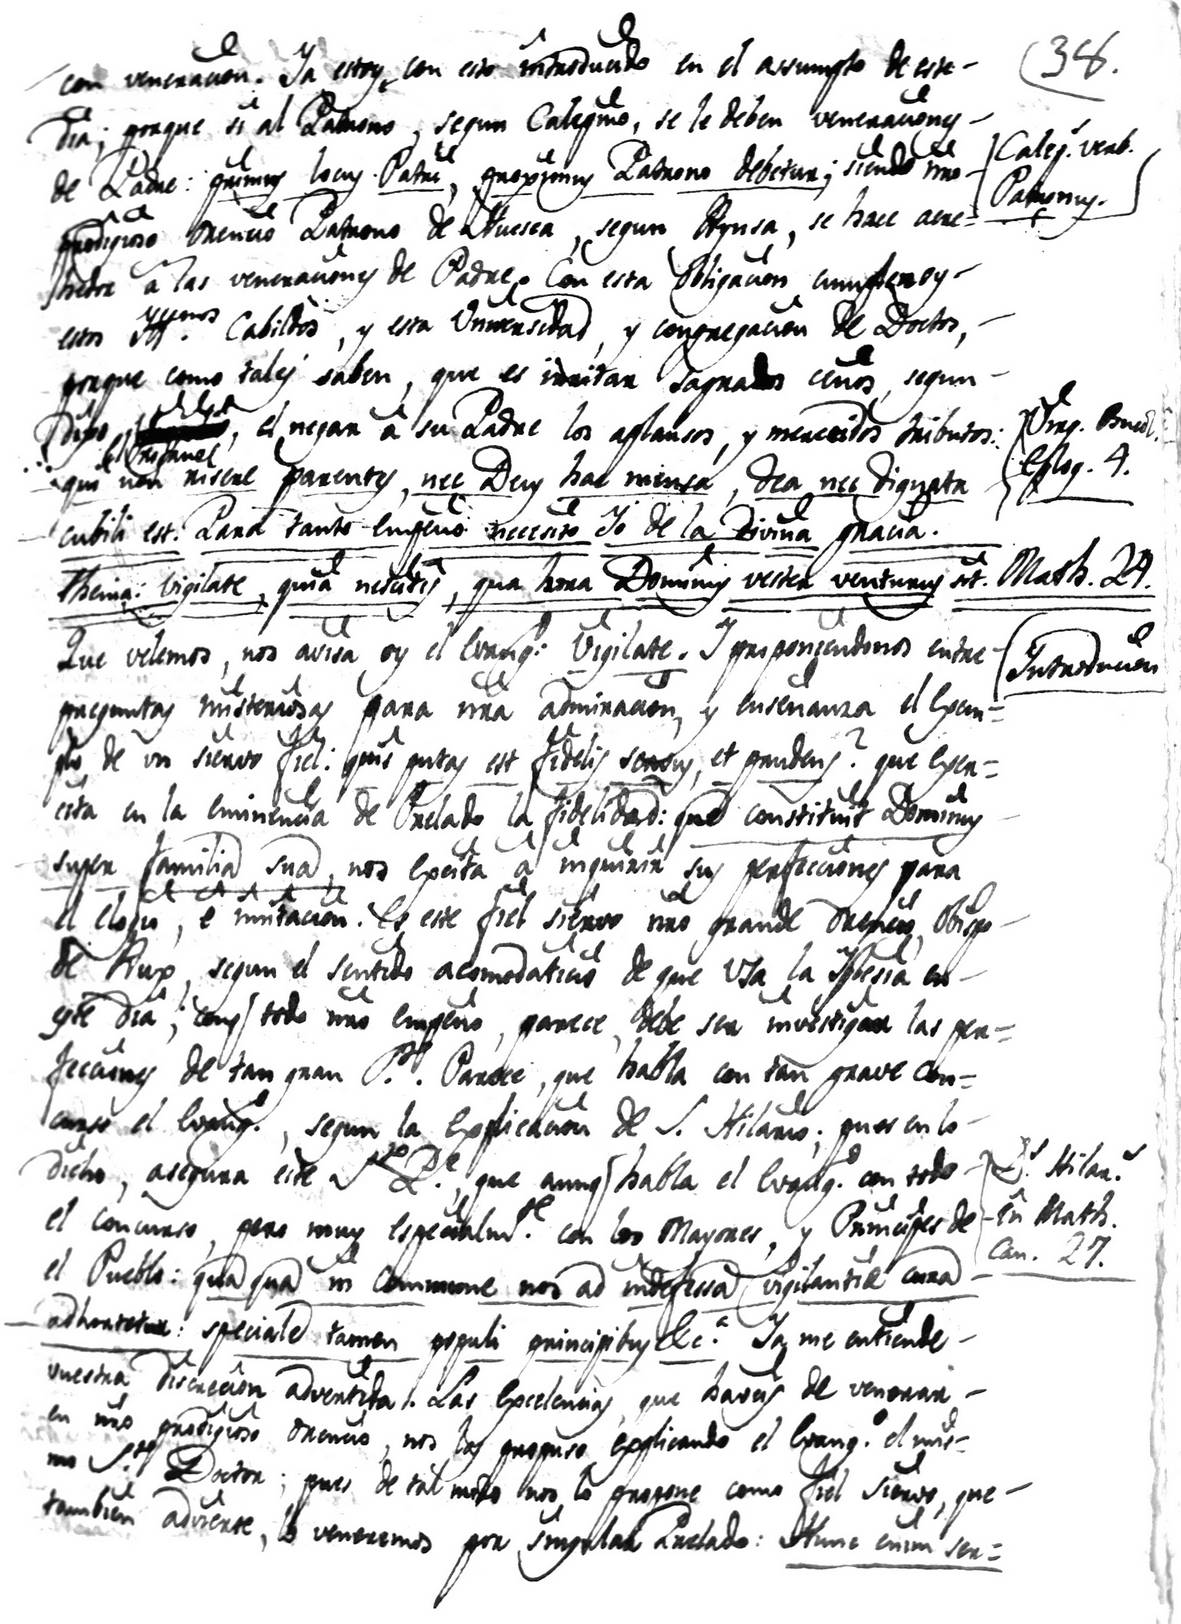 (38.
con veneracion. Ya estoy con esto introducido en el assumpto de este-
dia; porque si al Patrono, segun Calepino, se le deben veneraciones-
de Padre: primus locus Patri, proximus Patrono debetur; siendo nro-
Calep. verb.
Patronus.
prodigioso Orencio Patrono de Huesca, segun Aynsa, se hace acre=
hedor a las veneraciones de Padre. Con esta obligacion cumplen oy-
estos Cabildos, y esta Universidad, y congregacion de Doctos,-
porque como tales saben, que es imitar sagrados segun-
dijo, el negar à su Padre los aplausos, y merecidos tributos:
Virg. Bucol.
Eglog. 4.
qui non risere parentes, nec Deus hac mensa, dea nec dignata
cubili est. Para tanto empeño necesito Yo de la Divina gracia.
Thema: Vigilate, quia nescitis, qua hora Dominus vester venturus sit. Math. 24.
Que velemos, nos avisa oy el Evang.o: Vigilate. Y proponiendonos entre-
Introduccion
preguntas misteriosas para nra admiracion, y enseñanza el Exem=
plo de vn siervo fiel: quis putas est fidelis servus, et prudens? que Exer=
cita en la eminencia de Prelado la fidelidad: que constituit Dominus
super familia sua, nos Excita a inquirir sus perfecciones para
el elogio, e imitacion. Es este fiel siervo nro grande Orencio, Obispo-
de Aux, segun el sentido acomodaticio de que Vsa la Iglesia en-
este dia; conq todo nro empeño, parece, debe ser investigar las per=
fecciones de tan gran P.e. Parece, que habla con tan grave Con=
curso el Evang.o, segun la Explicacion de S. Hilario; pues en lo-
dicho, asegura este S.to P.e, que aunq habla el Evang.o con todo-
S. Hilar.s
in Math.
Can. 27.
el concurso, pero muy Especialm.te con los Mayores, y Principes de
el Pueblo: quaqua in Commune nos ad indefessa vigilantiæ cura
adhortetur: speciale tamen populi principibus &c.a Ya me entiende-
vuestra discrecion advertida. Las Excelencias, que haveis de venerar-
en nro prodigioso Orencio, nos las propuso, Explicando el Evang.o el mis=
mo S.to Doctor; pues de tal modo nos lo propone como fiel Siervo, que-
tambien advierte, lo veneremos por singular Prelado: Hunc enim ser=